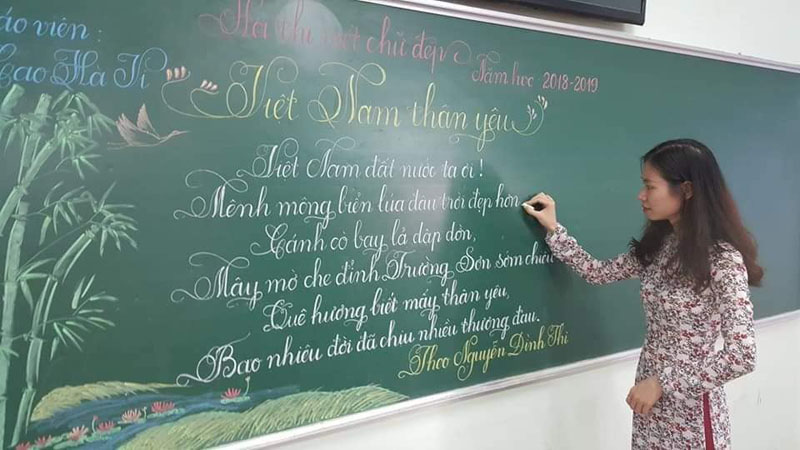 áo viên:
Cao Ha Ti
Há thi viết chữ đẹp
Năm học 2018-2019
Việt Nam thân yêu
Việt Nam đất nước ta ơi!
Mênh mông biển lúa đâu trời đẹp hơn
Cánh cò bay lả dập dờn,
Mây mờ che đỉnh Trường Sơn sớm chiều
Quê hương biết mấy thân yêu,
Bao nhiêu đời đã chịu nhiều thương đau.
Theo Nguyễn Đình Thi